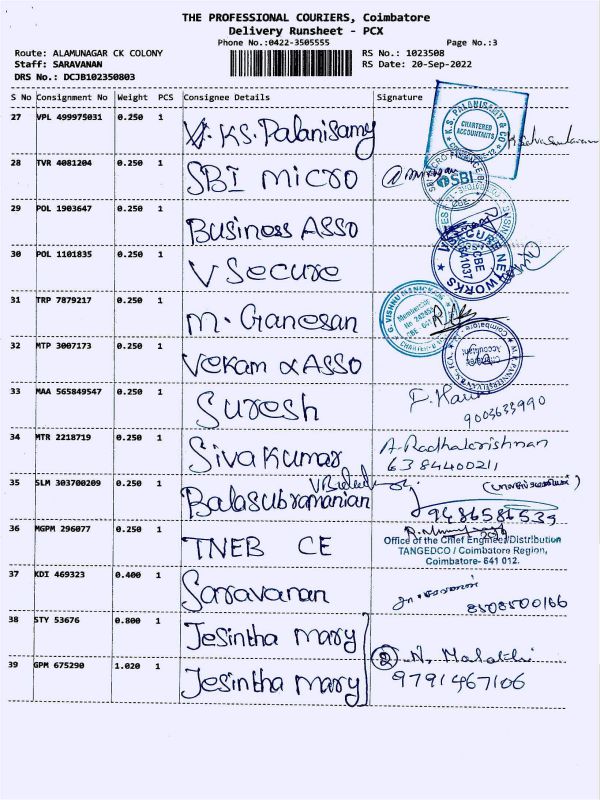 THE PROFESSIONAL COURIERS, Coimbatore
Delivery Runsheet - PCX
Phone No.:0422-3505555 Page No.:3
Route: ALAMUNAGAR CK COLONY RS No.: 1023508
Staff: SARAVANAN RS Date: 20-Sep-2022
DRS No.: DCJB102350803
S No Consignment No Weight PCS Consignee Details Signature
27 VPL 499975031 0.250 1 KS. Palanisamy
K.S. PALANISAMY & CO
CHARTERED
ACCOUNTANTS
28 TVR 4081204 0.250 1 SBI micro
SBI
29 POL 1903647 0.250 1 Business ASSO
30 POL 1101835 0.250 1 V Secure
V SECURE NETWORKS
CBE
641037
31 TRP 7879217 0.250 1 M. Ganesan
G. VISHNU
Membership
32 MTP 3007173 0.250 1 Vekam & ASSO
Coimbatore
Chartered
Accountant
33 MAA 565849547 0.250 1 Suresh
9003633990
34 MTR 2218719 0.250 1 Siva Kumar A. Radhakrishnan
6384400211
35 SLM 303700209 0.250 1 Balasubramanian
9486586539
36 MGPM 296077 0.250 1 TNEB CE
Office of the Chief Engineer/Distribution
TANGEDCO / Coimbatore Region,
Coimbatore- 641 012.
37 KDI 469323 0.400 1 Saravanan
8508500166
38 STY 53676 0.800 1 Jesintha Mary
39 GPM 675290 1.020 1 Jesintha Mary
② 9791467106